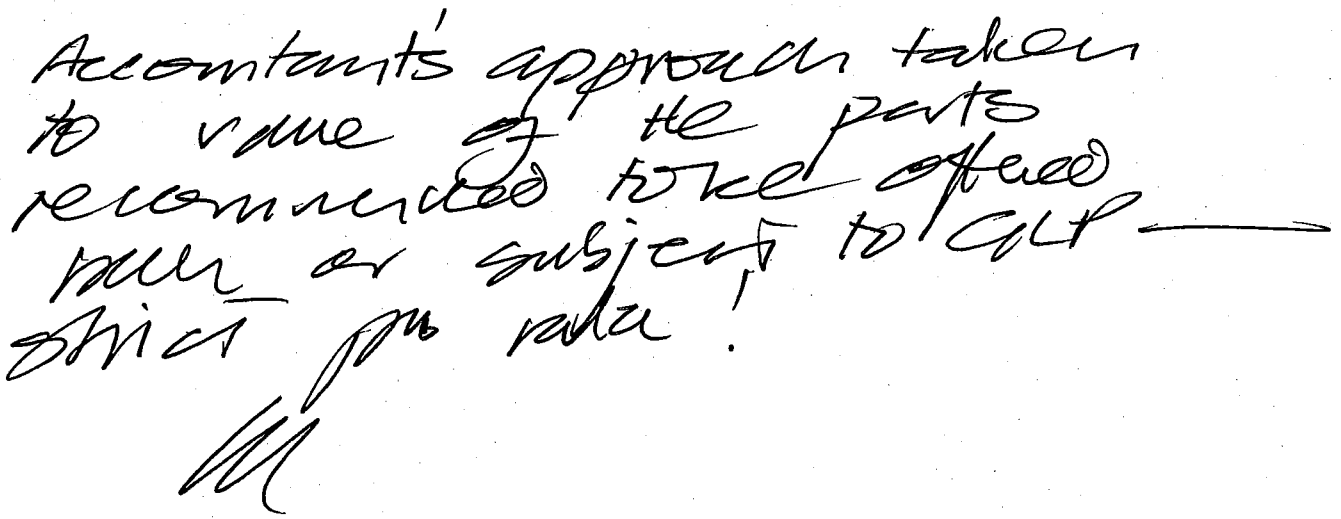 Accountant's approach taken
to value of the parts
recommended to be offered
or subject to
strict pro rata!